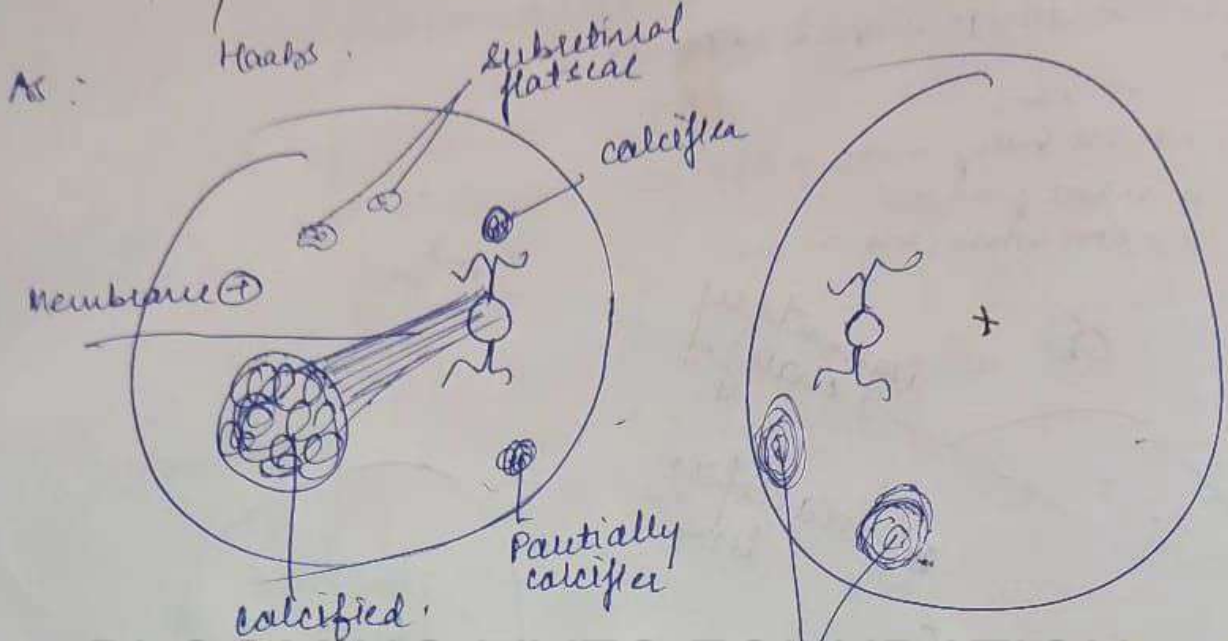 Haabs.
As :
subretinal
flat scar
calcified
Membrane +
Partially
calcified
calcified.